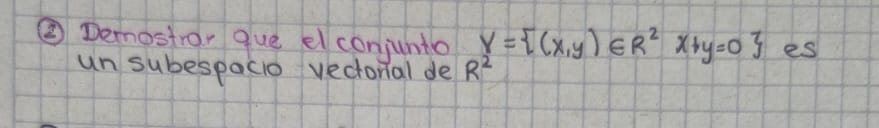 ② Demostrar que el conjunto Y={(x,y) ∈ R² x+y=0} es
un subespacio vectorial de R²